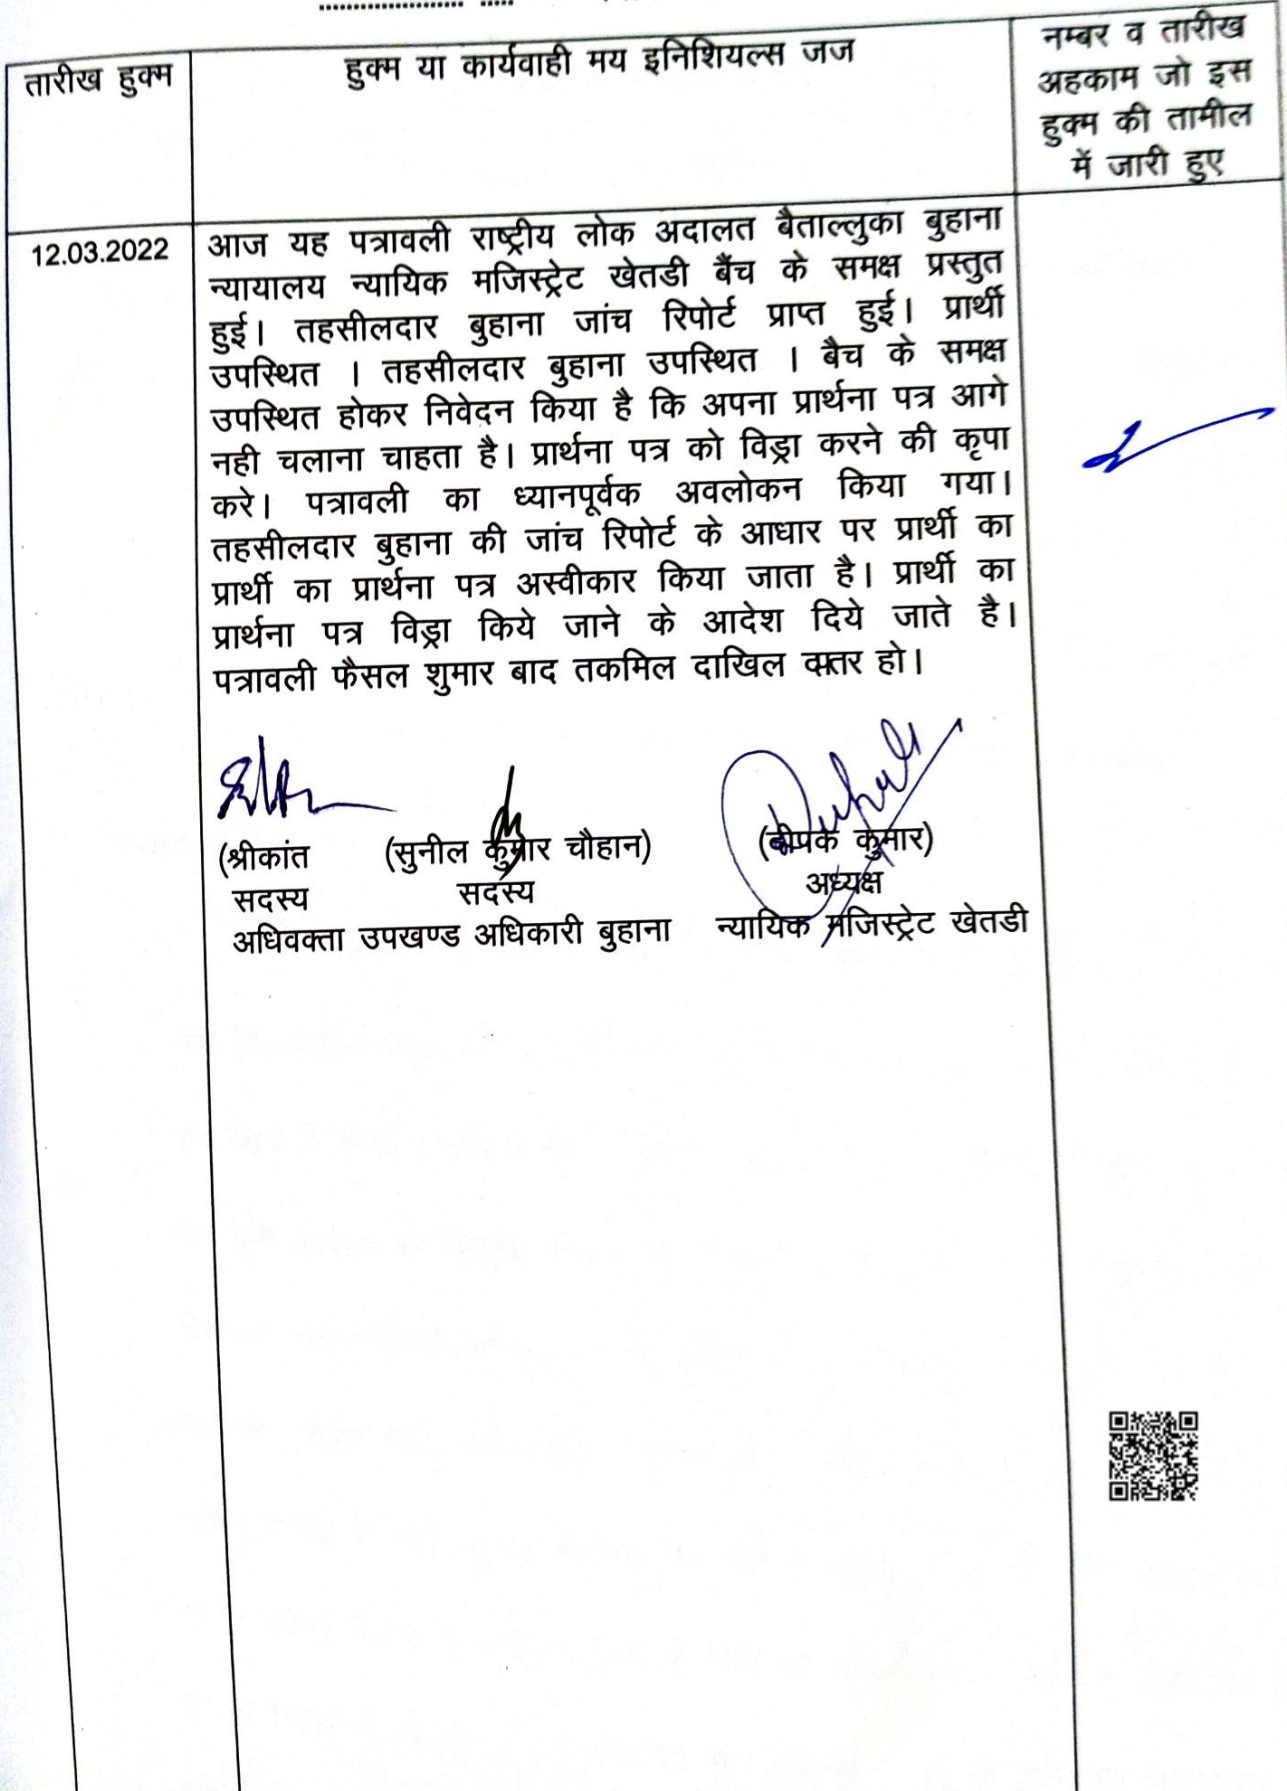 तारीख हुक्म
हुक्म या कार्यवाही मय इनिशियल्स जज
नम्बर व तारीख
अहकाम जो इस
हुक्म की तामील
में जारी हुए
12.03.2022
आज यह पत्रावली राष्ट्रीय लोक अदालत बैताल्लुका बुहाना
न्यायालय न्यायिक मजिस्ट्रेट खेतडी बैंच के समक्ष प्रस्तुत
हुई। तहसीलदार बुहाना जांच रिपोर्ट प्राप्त हुई। प्रार्थी
उपस्थित । तहसीलदार बुहाना उपस्थित । बैच के समक्ष
उपस्थित होकर निवेदन किया है कि अपना प्रार्थना पत्र आगे
नही चलाना चाहता है। प्रार्थना पत्र को विड्रा करने की कृपा
करे। पत्रावली का ध्यानपूर्वक अवलोकन किया गया।
तहसीलदार बुहाना की जांच रिपोर्ट के आधार पर प्रार्थी का
प्रार्थी का प्रार्थना पत्र अस्वीकार किया जाता है। प्रार्थी का
प्रार्थना पत्र विड्रा किये जाने के आदेश दिये जाते है।
पत्रावली फैसल शुमार बाद तकमिल दाखिल हो।
(श्रीकांत (सुनील कुमार चौहान) (दीपक कुमार)
सदस्य सदस्य अध्यक्ष
अधिवक्ता उपखण्ड अधिकारी बुहाना न्यायिक मजिस्ट्रेट खेतडी